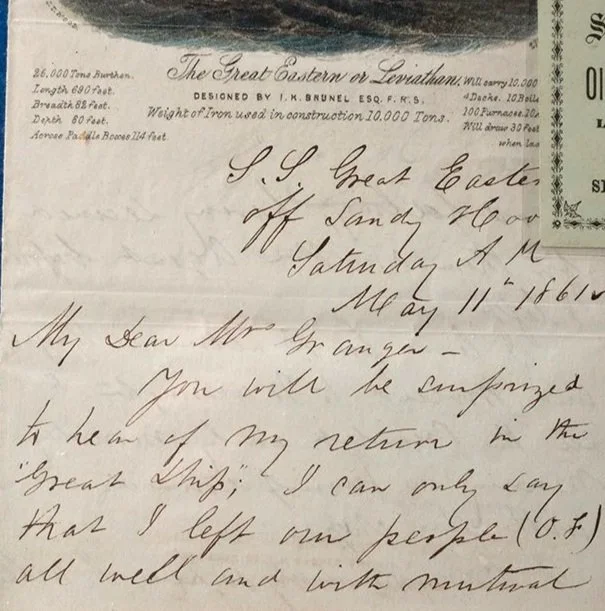 The Great Eastern or Leviathan.
DESIGNED BY I. K. BRUNEL ESQ. F. R. S.
Weight of Iron used in construction 10,000 Tons.
25,000 Tons Burthen.
Length 680 feet.
Breadth 82 feet.
Depth 60 feet.
Across Paddle Boxes 114 feet.
Will carry 10,000
4 Decks. 10 Boile
100 Furnaces.
Will draw 30 feet
when
OI
L
SI
S. S. Great Easter
off Sandy Hoo
Saturday A M
May 11th 1861
My Dear Mrs Granger -
You will be surprized
to hear of my return in the
"Great Ship"; I can only say
that I left our people (O.F)
all well and with mutual